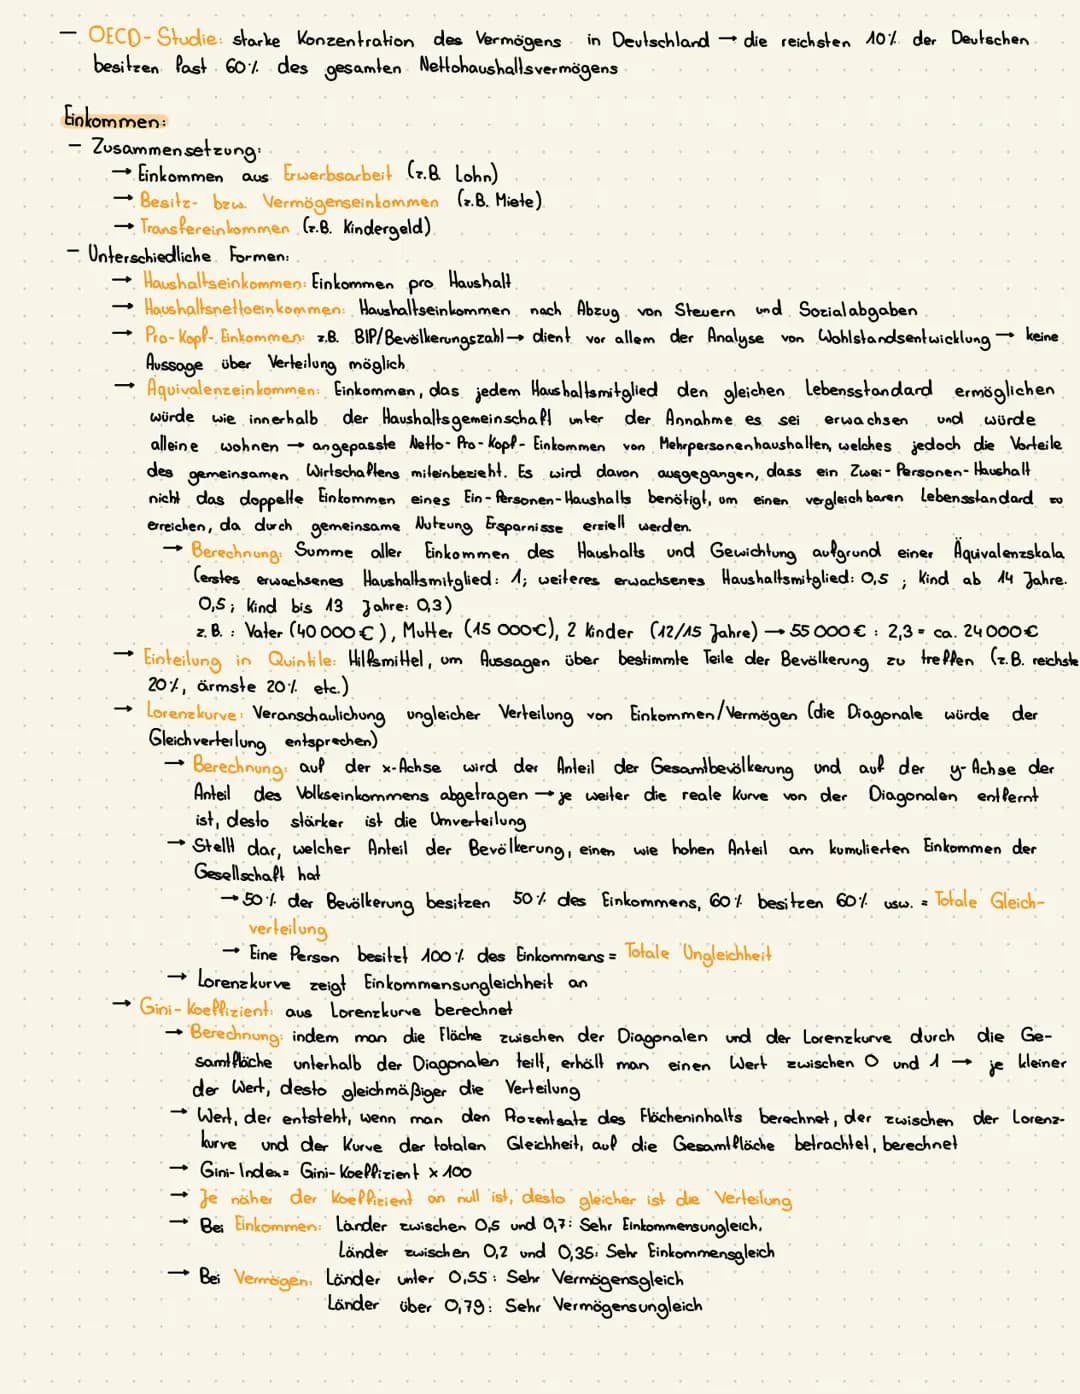 – OECD-Studie: starke Konzentration des Vermögens in Deutschland → die reichsten 10% der Deutschen
besitzen fast 60% des gesamten Nettohaushaltsvermögens
Einkommen:
– Zusammensetzung:
→ Einkommen aus Erwerbsarbeit (z.B. Lohn)
→ Besitz- bzw. Vermögenseinkommen (z.B. Miete)
→ Transfereinkommen (z.B. Kindergeld)
– Unterschiedliche Formen:
→ Haushaltseinkommen: Einkommen pro Haushalt
→ Haushaltsnettoeinkommen: Haushaltseinkommen nach Abzug von Steuern und Sozialabgaben
→ Pro-Kopf-Einkommen: z.B. BIP/Bevölkerungszahl → dient vor allem der Analyse von Wohlstandsentwicklung → keine
Aussage über Verteilung möglich
→ Äquivalenzeinkommen: Einkommen, das jedem Haushaltsmitglied den gleichen Lebensstandard ermöglichen
würde wie innerhalb der Haushaltsgemeinschaft unter der Annahme es sei erwachsen und würde
alleine wohnen → angepasste Netto-Pro-Kopf-Einkommen von Mehrpersonenhaushalten, welches jedoch die Vorteile
des gemeinsamen Wirtschaftens miteinbezieht. Es wird davon ausgegangen, dass ein Zwei-Personen-Haushalt
nicht das doppelte Einkommen eines Ein-Personen-Haushalts benötigt, um einen vergleichbaren Lebensstandard zu
erreichen, da durch gemeinsame Nutzung Ersparnisse erzielt werden.
→ Berechnung: Summe aller Einkommen des Haushalts und Gewichtung aufgrund einer Äquivalenzskala
(erstes erwachsenes Haushaltsmitglied: 1; weiteres erwachsenes Haushaltsmitglied: 0,5 ; Kind ab 14 Jahre:
0,5; Kind bis 13 Jahre: 0,3)
z.B.: Vater (40 000€), Mutter (15 000€), 2 Kinder (12/15 Jahre) → 55 000€ : 2,3 = ca. 24 000€
→ Einteilung in Quintile: Hilfsmittel, um Aussagen über bestimmte Teile der Bevölkerung zu treffen (z.B. reichste
20%, ärmste 20% etc.)
→ Lorenzkurve: Veranschaulichung ungleicher Verteilung von Einkommen/Vermögen (die Diagonale würde der
Gleichverteilung entsprechen)
→ Berechnung: auf der x-Achse wird der Anteil der Gesamtbevölkerung und auf der y-Achse der
Anteil des Volkseinkommens abgetragen → je weiter die reale Kurve von der Diagonalen entfernt
ist, desto stärker ist die Umverteilung
→ Stellt dar, welcher Anteil der Bevölkerung, einen wie hohen Anteil am kumulierten Einkommen der
Gesellschaft hat
→ 50% der Bevölkerung besitzen 50% des Einkommens, 60% besitzen 60% usw. = Totale Gleich-
verteilung
→ Eine Person besitzt 100% des Einkommens = Totale Ungleichheit
→ Lorenzkurve zeigt Einkommensungleichheit an
→ Gini-Koeffizient: aus Lorenzkurve berechnet
→ Berechnung: indem man die Fläche zwischen der Diagonalen und der Lorenzkurve durch die Ge-
samtfläche unterhalb der Diagonalen teilt, erhält man einen Wert zwischen 0 und 1 → je kleiner
der Wert, desto gleichmäßiger die Verteilung
→ Wert, der entsteht, wenn man den Prozentsatz des Flächeninhalts berechnet, der zwischen der Lorenz-
kurve und der Kurve der totalen Gleichheit, auf die Gesamtfläche betrachtet, berechnet
→ Gini-Index = Gini-Koeffizient x 100
→ Je näher der Koeffizient an null ist, desto gleicher ist die Verteilung
→ Bei Einkommen: Länder zwischen 0,5 und 0,7: Sehr Einkommensungleich,
Länder zwischen 0,2 und 0,35: Sehr Einkommensgleich
→ Bei Vermögen: Länder unter 0,55: Sehr Vermögensgleich
Länder über 0,79: Sehr Vermögensungleich